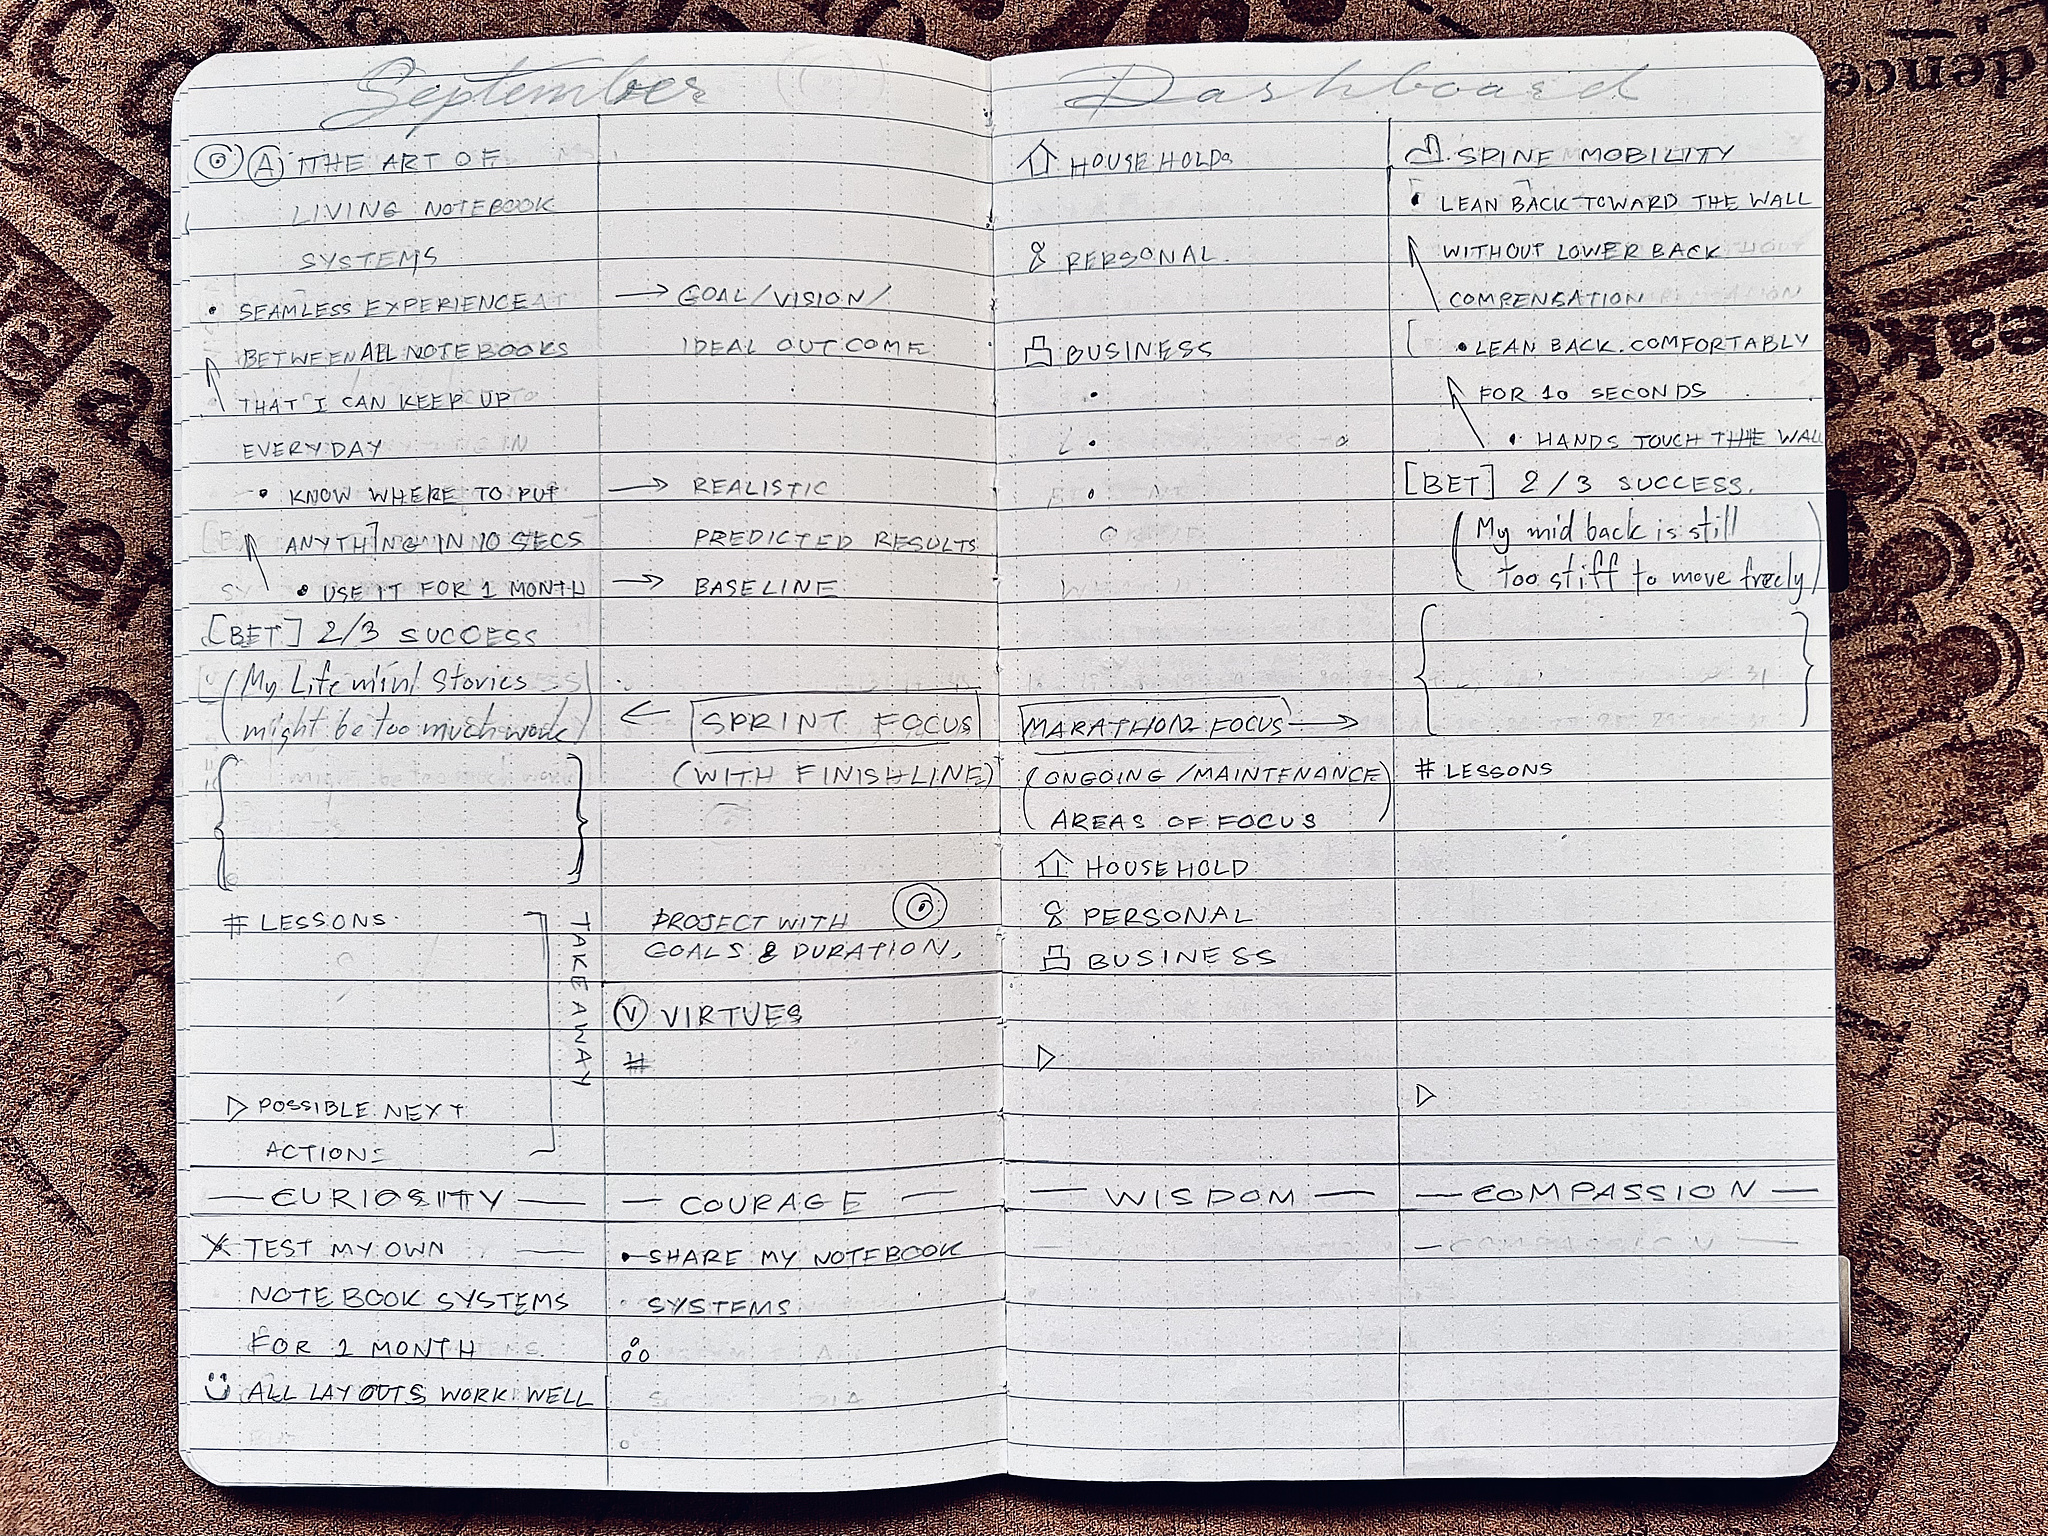 September
Dashboard
A THE ART OF
LIVING NOTEBOOK
SYSTEMS
• SEAMLESS EXPERIENCE
BETWEEN ALL NOTEBOOKS
THAT I CAN KEEP UP
EVERYDAY
• KNOW WHERE TO PUT
ANYTHING IN 10 SECS
• USE IT FOR 1 MONTH
[BET] 2/3 SUCCESS
(My Life mini Stories
might be too much work)
# LESSONS
TAKE AWAY
▷ POSSIBLE NEXT
ACTIONS
— CURIOSITY —
X TEST MY OWN
NOTEBOOK SYSTEMS
FOR 1 MONTH
ALL LAYOUTS WORK WELL
→ GOAL/VISION/
IDEAL OUTCOME
→ REALISTIC
PREDICTED RESULTS
→ BASELINE
← SPRINT FOCUS
(WITH FINISHLINE)
PROJECT WITH
GOALS & DURATION,
V VIRTUES
#
— COURAGE —
• SHARE MY NOTEBOOK
SYSTEMS
HOUSEHOLDS
PERSONAL
BUSINESS
MARATHON FOCUS →
(ONGOING/MAINTENANCE)
AREAS OF FOCUS
HOUSEHOLD
PERSONAL
BUSINESS
▷
— WISDOM —
SPINE MOBILITY
• LEAN BACK TOWARD THE WALL
WITHOUT LOWER BACK
COMPENSATION
• LEAN BACK COMFORTABLY
FOR 10 SECONDS
• HANDS TOUCH THE WALL
[BET] 2/3 SUCCESS.
(My mid back is still
too stiff to move freely)
# LESSONS
▷
— COMPASSION —